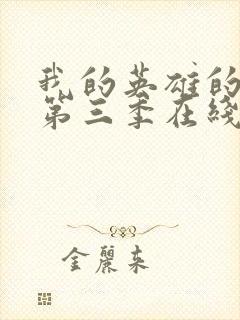 我的英雄的
第三季在线
金丽来